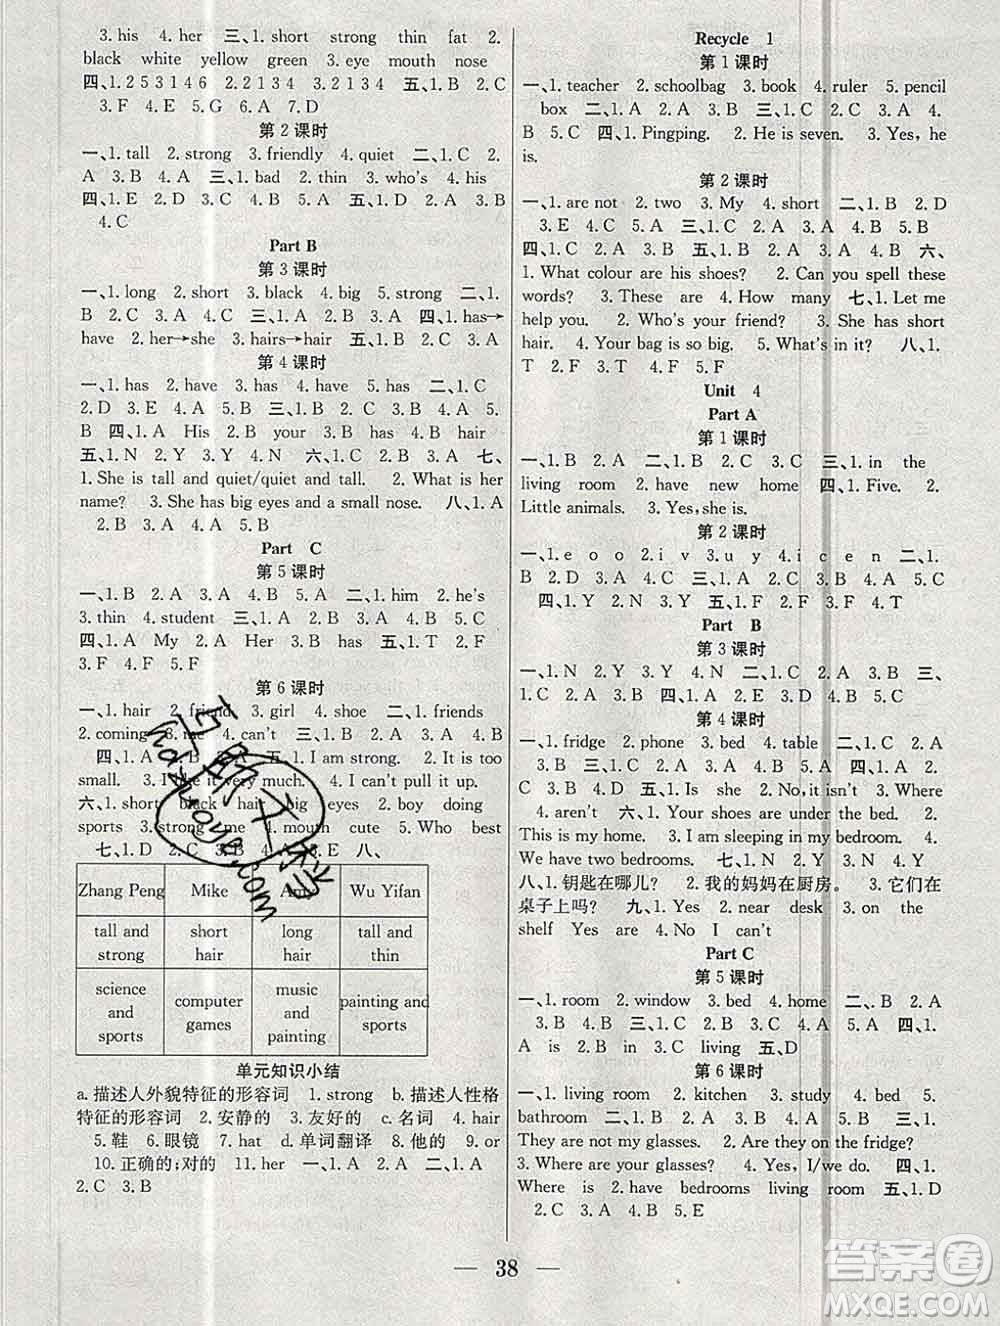 3. his 4. her 三、1. short strong thin fat 2.
black white yellow green 3. eye mouth nose
四、1. 2 5 3 1 4 6 2. 2 1 3 4 五、1. B 2. C
3. F 4. E 5. G 6. A 7. D
第 2 课时
一、1. tall 2. strong 3. friendly 4. quiet 二、1. C 2.
A 3. B 4. A 三、1. bad 2. thin 3. who's 4. his
四、1. E 2. D 3. C 4. B 5. A 五、1. D 2. A 3. B
4. C
Part B
第 3 课时
一、1. long 2. short 3. black 4. big 5. strong 二、1.
B 2. C 3. C 4. C 三、1. A 2. B 3. A 四、1. has→
have 2. her→she 3. hairs→hair 五、1. B 2. C 3. A
第 4 课时
一、1. has 2. have 3. has 4. have 5. has 二、1. C
2. D 3. E 4. A 5. B 三、1. C 2. A 3. A 4. C 5.
B 四、1. A His 2. B your 3. B has 4. B hair
五、1. N 2. Y 3. Y 4. N 六、1. C 2. B 3. A 七、
1. She is tall and quiet/quiet and tall. 2. What is her
name? 3. She has big eyes and a small nose. 八、1. A
2. B 3. A 4. A 5. B
Part C
第 5 课时
一、1. B 2. A 3. B 4. B 5. A 二、1. him 2. he's
3. thin 4. student 三、1. C 2. A 3. A 4. A 5. A
四、1. A My 2. A Her 3. B has 五、1. T 2. F
3. F 4. F 5. F
第 6 课时
一、1. hair 2. friend 3. girl 4. shoe 二、1. friends
2. coming 3. me 4. can't 三、1. C 2. A 3. A 4. C
四、1. A 2. B 3. A 4. B 五、1. I am strong. 2. It is too
small. 3. I like it very much. 4. I can't pull it up.
六、1. short black hair big eyes 2. boy doing
sports 3. strong me 4. mouth cute 5. Who best
七、1. D 2. C 3. B 4. E 5. A 八、
Zhang Peng Mike Amy Wu Yifan
tall and strong short hair long hair tall and thin
science and sports computer games music and painting painting and sports
单元知识小结
a. 描述人外貌特征的形容词 1. strong b. 描述人性格
特征的形容词 2. 安静的 3. 友好的 c. 名词 4. hair
5. 鞋 6. 眼镜 7. hat d. 单词翻译 8. 他的 9. or
10. 正确的;对的 11. her 一、1. A 2. B 二、1. A
2. C 3. B
Recycle 1
第 1 课时
一、1. teacher 2. schoolbag 3. book 4. ruler 5. pencil
box 二、1. A 2. A 3. B 三、1. C 2. A 3. A 4.
B 5. C 四、1. Pingping. 2. He is seven. 3. Yes, he
is.
第 2 课时
一、1. are not 2. two 3. My 4. short 二、1. B 2. D
3. E 4. C 5. A 三、1. C 2. A 3. A 4. B 5. B
四、1. C 2. A 3. B 五、1. B 2. A 3. A 4. B 六、
1. What colour are his shoes? 2. Can you spell these
words? 3. These are 4. How many 七、1. Let me
help you. 2. Who's your friend? 3. She has short
hair. 4. Your bag is so big. 5. What's in it? 八、1.
T 2. F 3. F 4. F 5. F
Unit 4
Part A
第 1 课时
一、1. B 2. A 二、1. B 2. A 3. C 三、1. in the
living room 2. have new home 四、1. Five. 2.
Little animals. 3. Yes, she is.
第 2 课时
一、1. e o o 2. i v 3. u y 4. i c e n 二、1.
B 2. D 3. C 4. A 三、1. B 2. A 3. A 4. A 5. C
四、1. Y 2. Y 3. N 4. N 五、1. B 2. C 3. A
Part B
第 3 课时
一、1. N 2. Y 3. Y 4. N 二、1. C 2. A 3. B 三、
1. C 2. A 3. B 4. A 四、1. B 2. E 3. D 4. C 5. A
第 4 课时
一、1. fridge 2. phone 3. bed 4. table 二、1. B 2. A
3. B 4. C 5. C 三、1. A 2. B 3. B 4. C 5. A
四、1. B 2. C 3. A 五、1. Is she 2. No, it isn't 3. Where
4. aren't 六、1. Your shoes are under the bed. 2.
This is my home. 3. I am sleeping in my bedroom. 4.
We have two bedrooms. 七、1. N 2. Y 3. N 4. Y
八、1. 钥匙在哪儿? 2. 我的妈妈在厨房。 3. 它们在
桌子上吗? 九、1. Yes 2. near desk 3. on the
shelf Yes are 4. No I can't
Part C
第 5 课时
一、1. room 2. window 3. bed 4. home 二、1. B 2. A
3. B 4. B 三、1. C 2. C 3. B 4. A 5. A 四、1.
A is 2. B in 3. C living 五、D
第 6 课时
一、1. living room 2. kitchen 3. study 4. bed 5.
bathroom 二、1. B 2. B 3. A 4. A 5. B 三、1.
They are not my glasses. 2. Are they on the fridge?
3. Where are your glasses? 4. Yes, I/we do. 四、1.
Where is 2. have bedrooms living room 五、1. D
2. C 3. A 4. B 5. E
38
答案圈
MXQE.COM